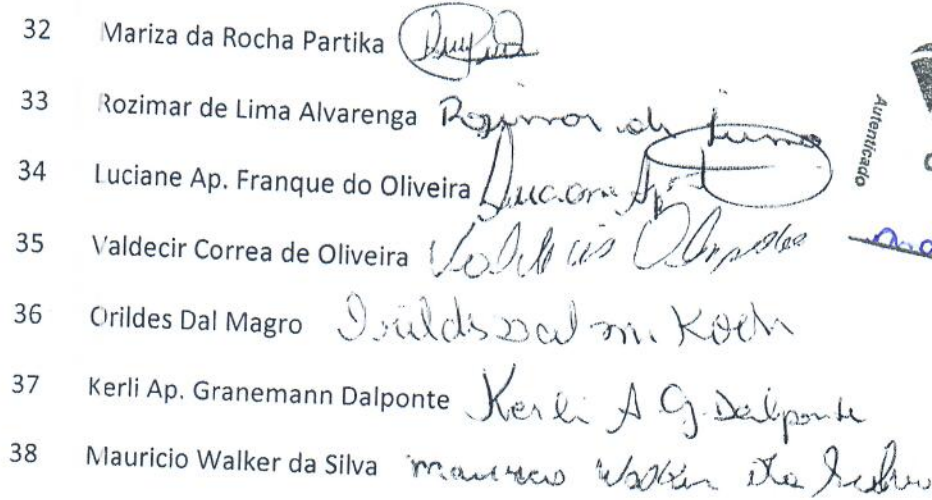 32 Mariza da Rocha Partika
33 Rozimar de Lima Alvarenga Rozimar de Lima
34 Luciane Ap. Franque do Oliveira Luciane Ap
35 Valdecir Correa de Oliveira Valdecir Oliveira
36 Orildes Dal Magro Orildes Dal M. Koch
37 Kerli Ap. Granemann Dalponte Kerli A G. Dalponte
38 Mauricio Walker da Silva Mauricio Walker da Silva
Autenticado